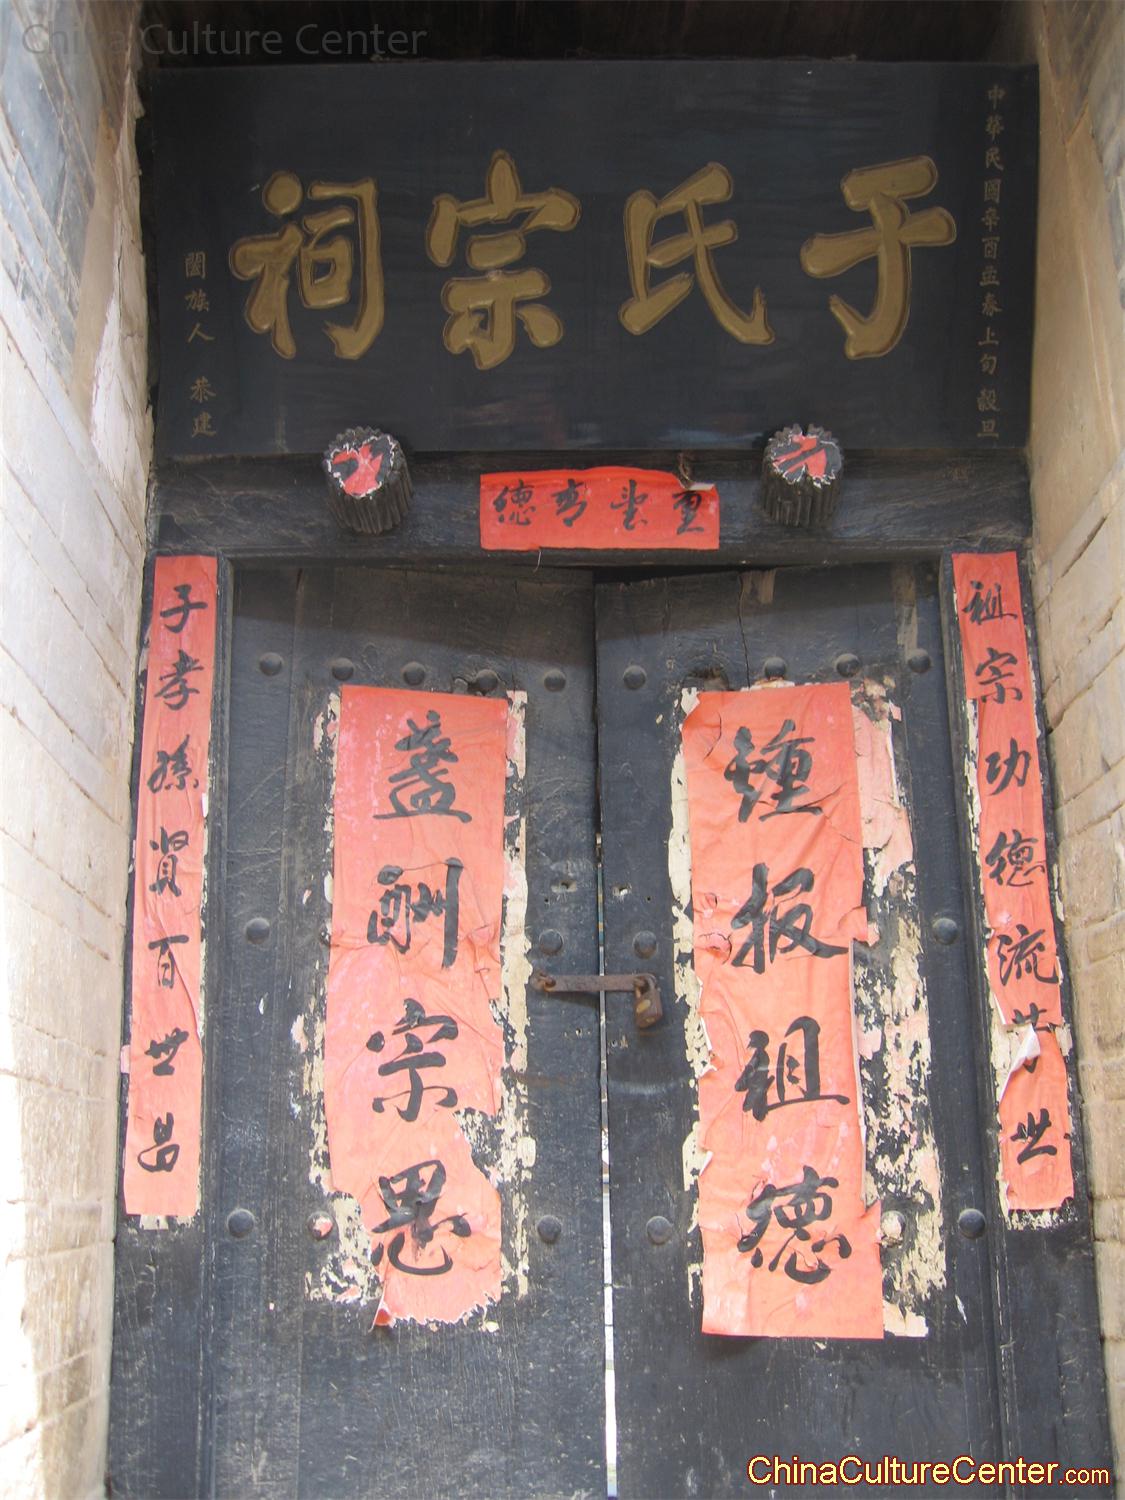 China Culture Center
中華民國辛酉孟春上旬 穀旦
于氏宗祠
闔族人 恭建
德
祖宗功德流芳世
煙报祖德
盏酬宗恩
子孝孫賢百世昌
ChinaCultureCenter.com